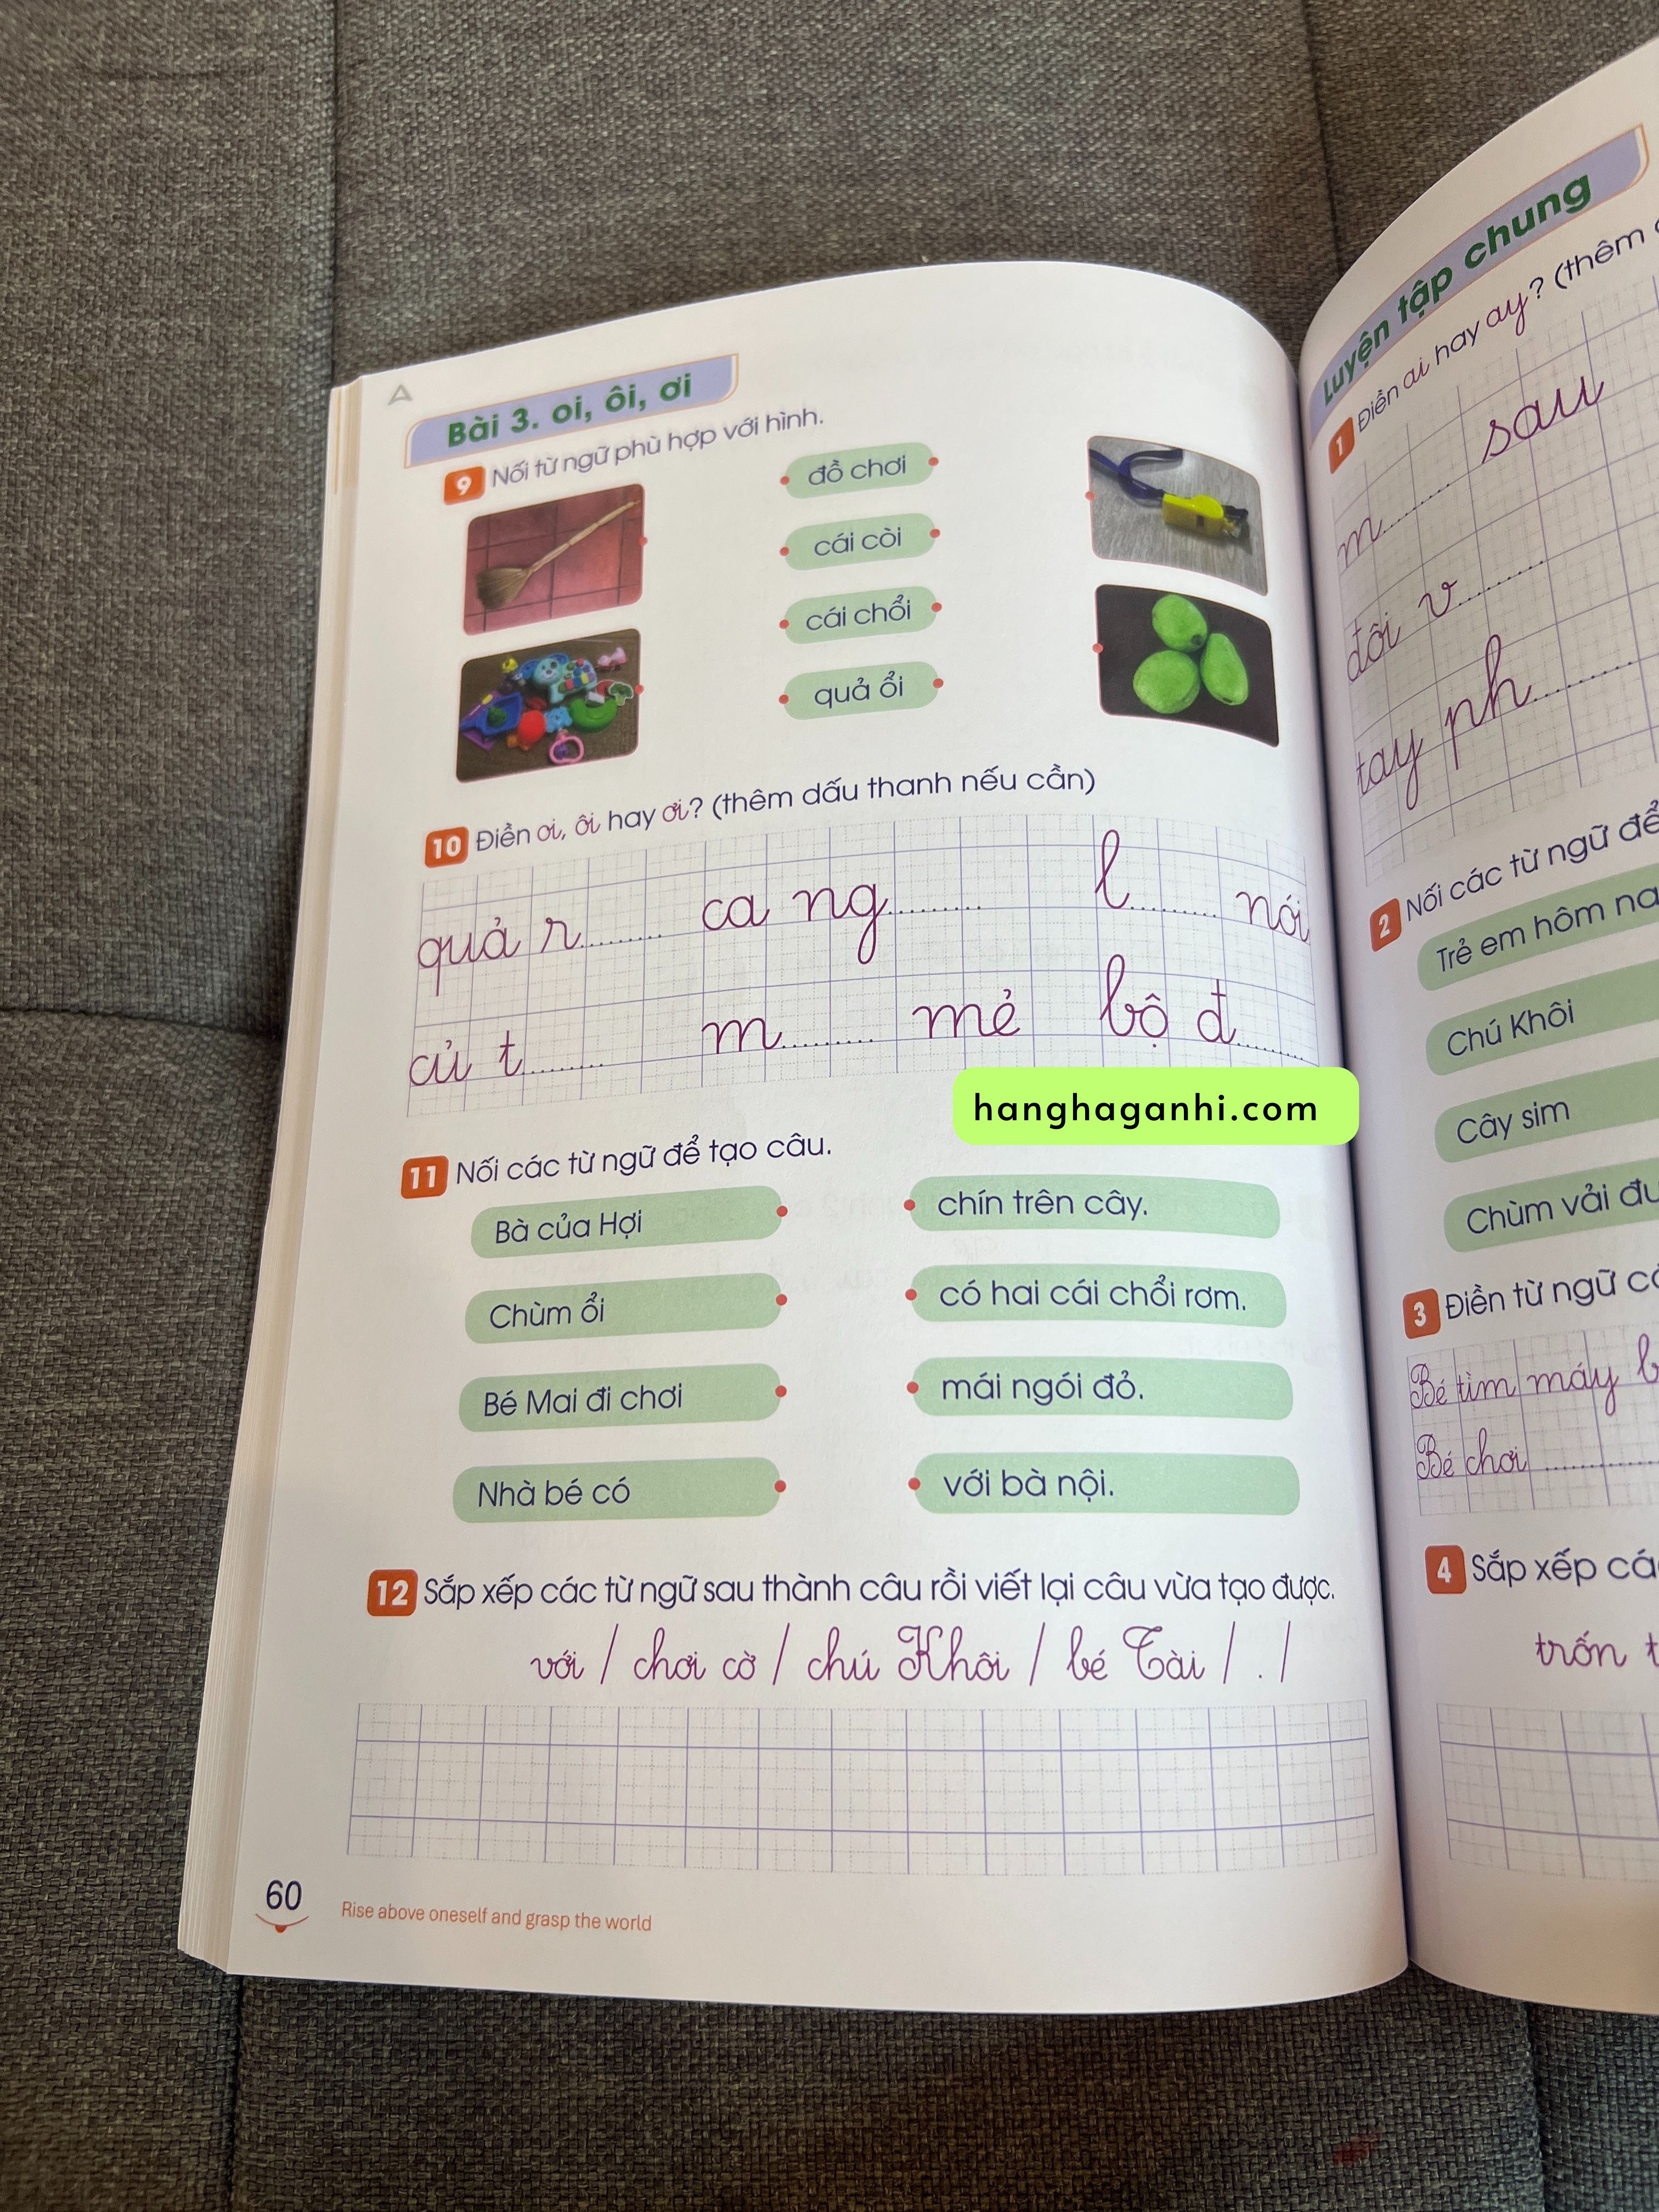 Bài 3. oi, ôi, ơi
9 Nối từ ngữ phù hợp với hình.
đồ chơi
cái còi
cái chổi
quả ổi
10 Điền oi, ôi hay ơi? (thêm dấu thanh nếu cần)
quả r........ ca ng........ l........ nói
củ t........ m........ mẻ bộ đ........
hanghaganhi.com
11 Nối các từ ngữ để tạo câu.
Bà của Hợi
chín trên cây.
Chùm ổi
có hai cái chổi rơm.
Bé Mai đi chơi
mái ngói đỏ.
Nhà bé có
với bà nội.
12 Sắp xếp các từ ngữ sau thành câu rồi viết lại câu vừa tạo được.
với / chơi cờ / chú Khôi / bé Tài / . /
60
Rise above oneself and grasp the world
Luyện tập chung
1 Điền ai hay ay? (thêm
m........ sau
đôi v........
tay ph........
2 Nối các từ ngữ để
Trẻ em hôm
Chú Khôi
Cây sim
Chùm vải
3 Điền từ ngữ
Bé tìm máy
Bé chơi ........
4 Sắp xếp
trốn